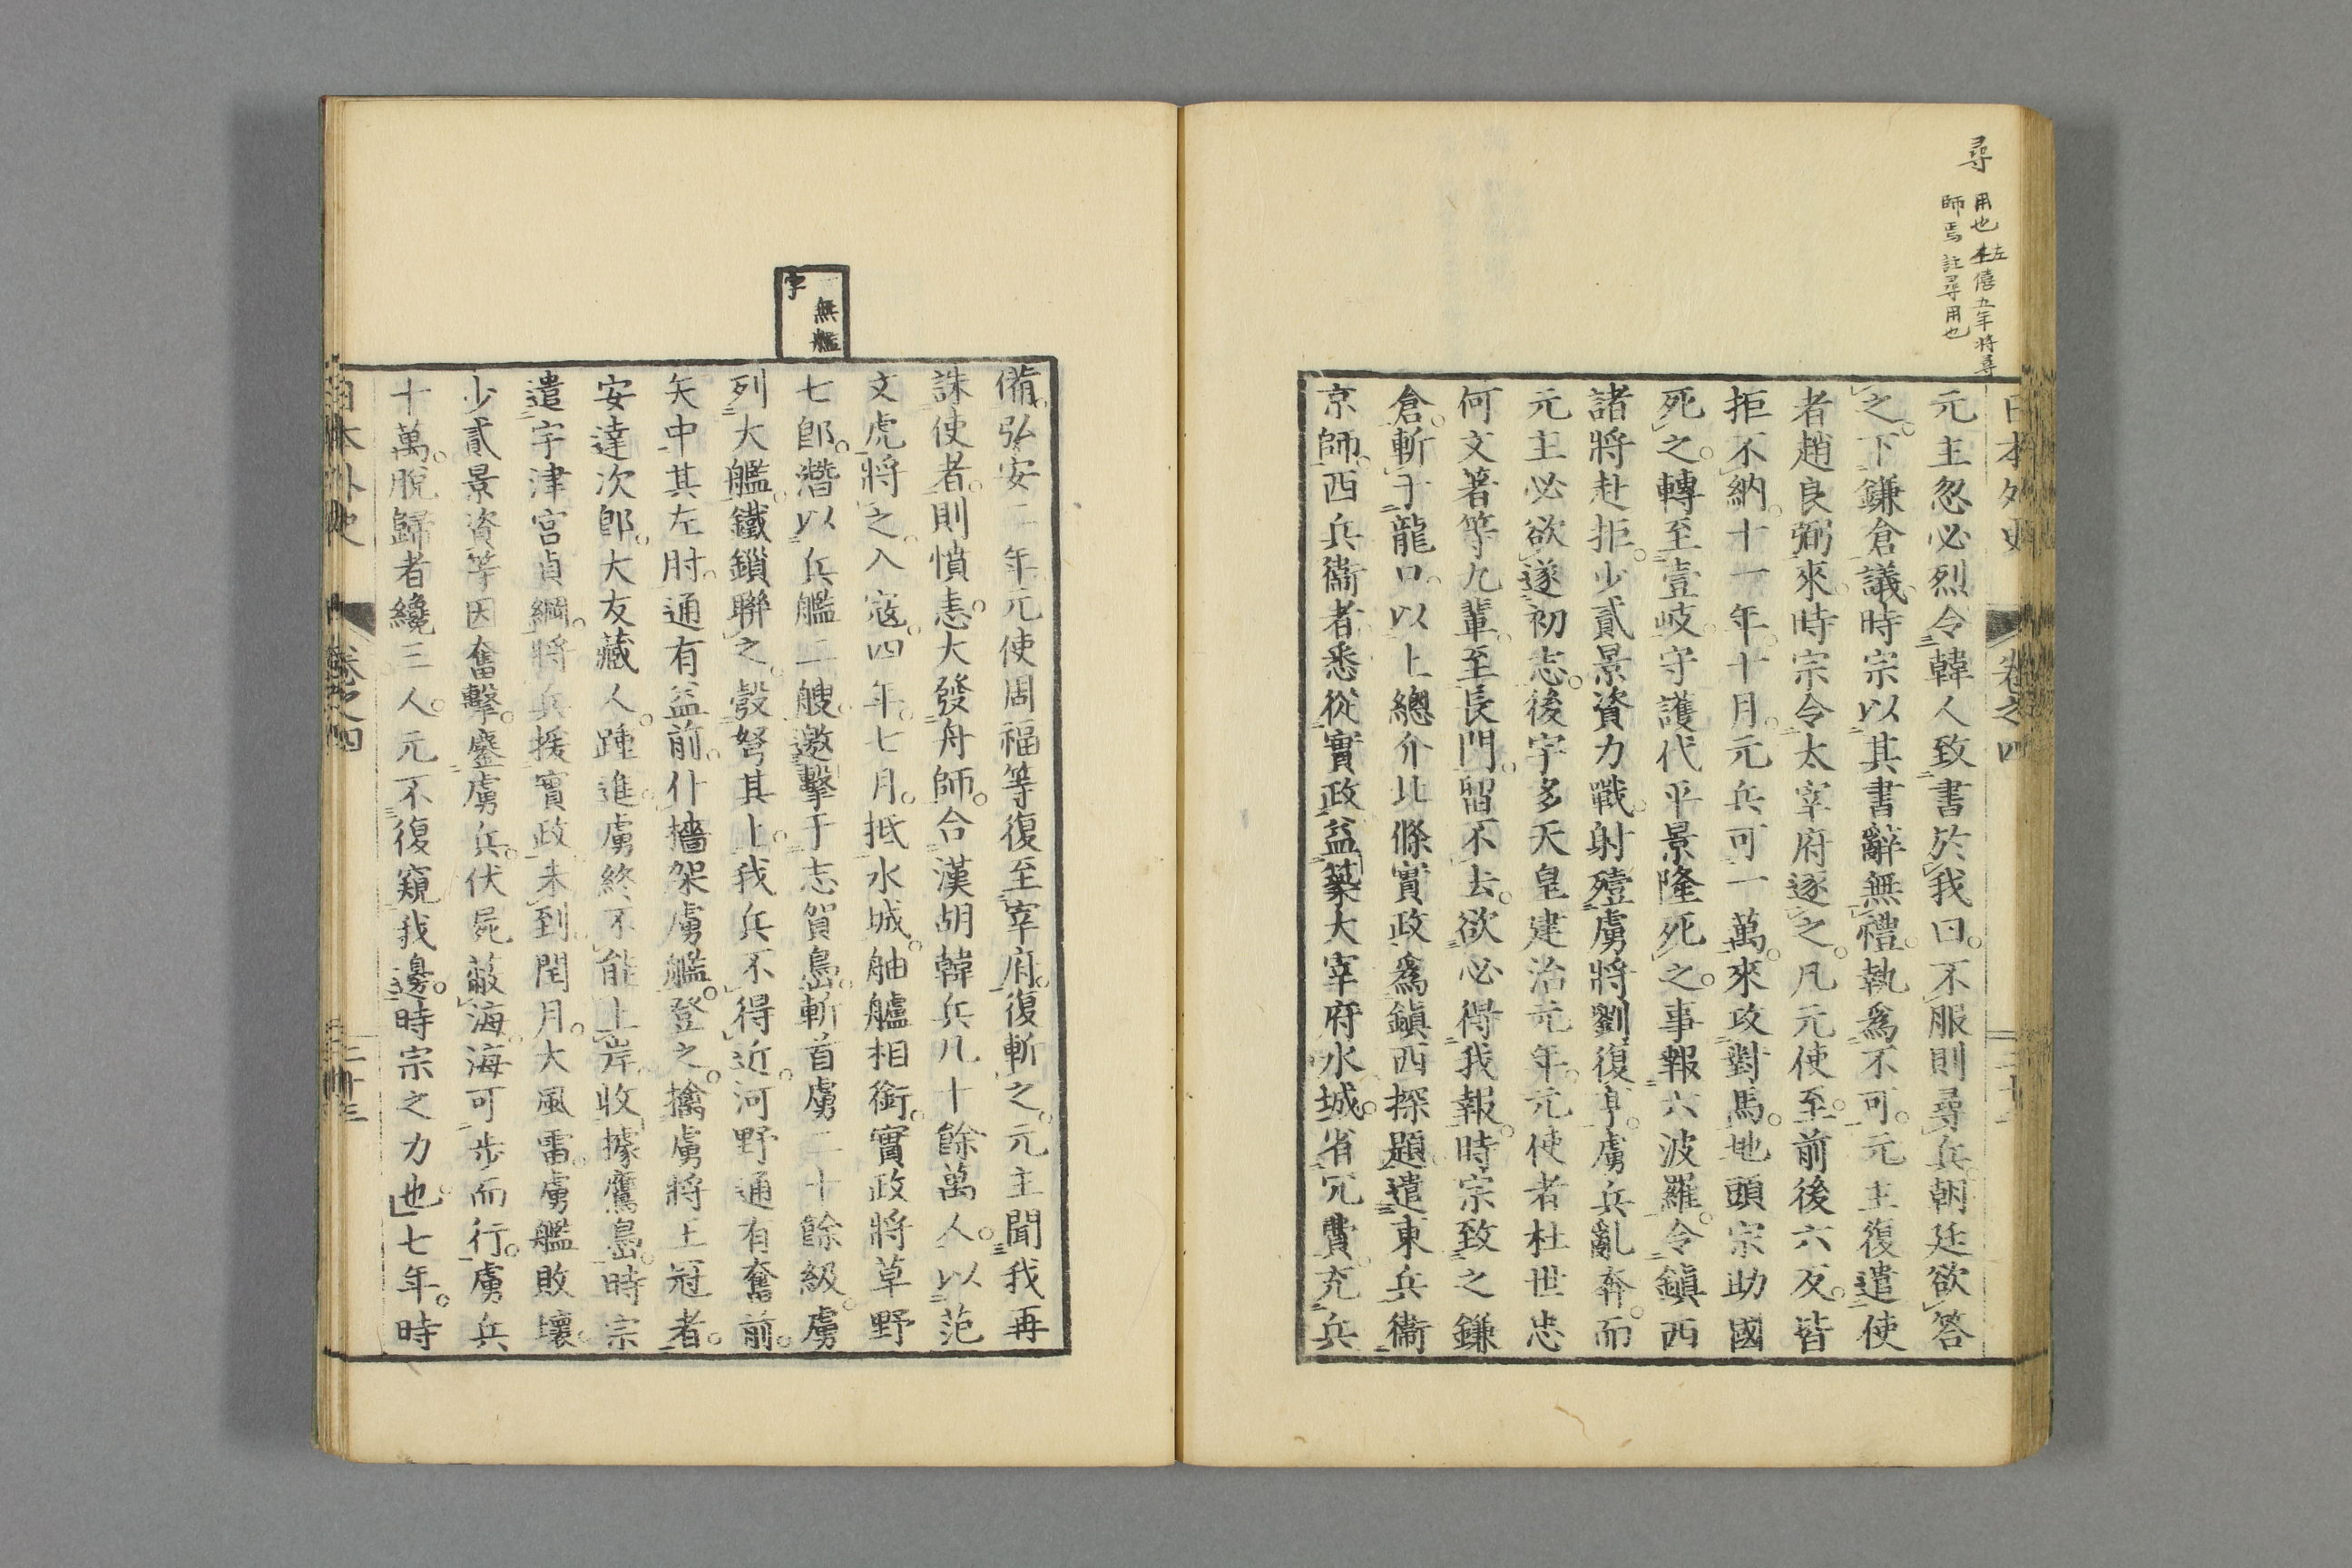 尋
用也左僖五年将尋
師焉註尋用也
日本外史 卷之四
元主忽必烈令韓人致書於我曰不服則尋兵朝廷欲答
之下鎌倉議時宗以其書辭無禮執爲不可元主復遣使
者趙良弼來時宗令太宰府逐之凡元使至前後六反皆
拒不納十一年十月元兵可一萬來攻對馬地頭宗助國
死之轉至壹岐守護代平景隆死之事報六波羅令鎭西
諸將赴拒少貳景資力戰射殪虜將劉復亨虜兵亂奔而
元主必欲遂初志後宇多天皇建治元年元使者杜世忠
何文著等九輩至長門留不去欲必得我報時宗致之鎌
倉斬于龍口以上總介北條實政爲鎭西探題遣東兵衞
京師西兵衞者悉從實政益築大宰府水城省冗費充兵
一無艦
字
備弘安二年元使周福等復至宰府復斬之元主聞我再
誅使者則憤恚大發舟師合漢胡韓兵凡十餘萬人以范
文虎將之入寇四年七月抵水城舳艫相銜實政將草野
七郎潛以兵艦二艘邀擊于志賀島斬首虜二十餘級虜
列大艦鐵鎖聯之彀弩其上我兵不得近河野通有奮前
矢中其左肘通有益前仆檣架虜艦登之擒虜將王冠者
安達次郎大友藏人踵進虜終不能上岸收據鷹島時宗
遣宇津宮貞綱將兵援實政未到閏月大風雷虜艦敗壞
少貳景資等因奮擊鏖虜兵伏屍蔽海海可步而行虜兵
十萬脫歸者纔三人元不復窺我邊時宗之力也七年時
日本外史 卷之四 二十三